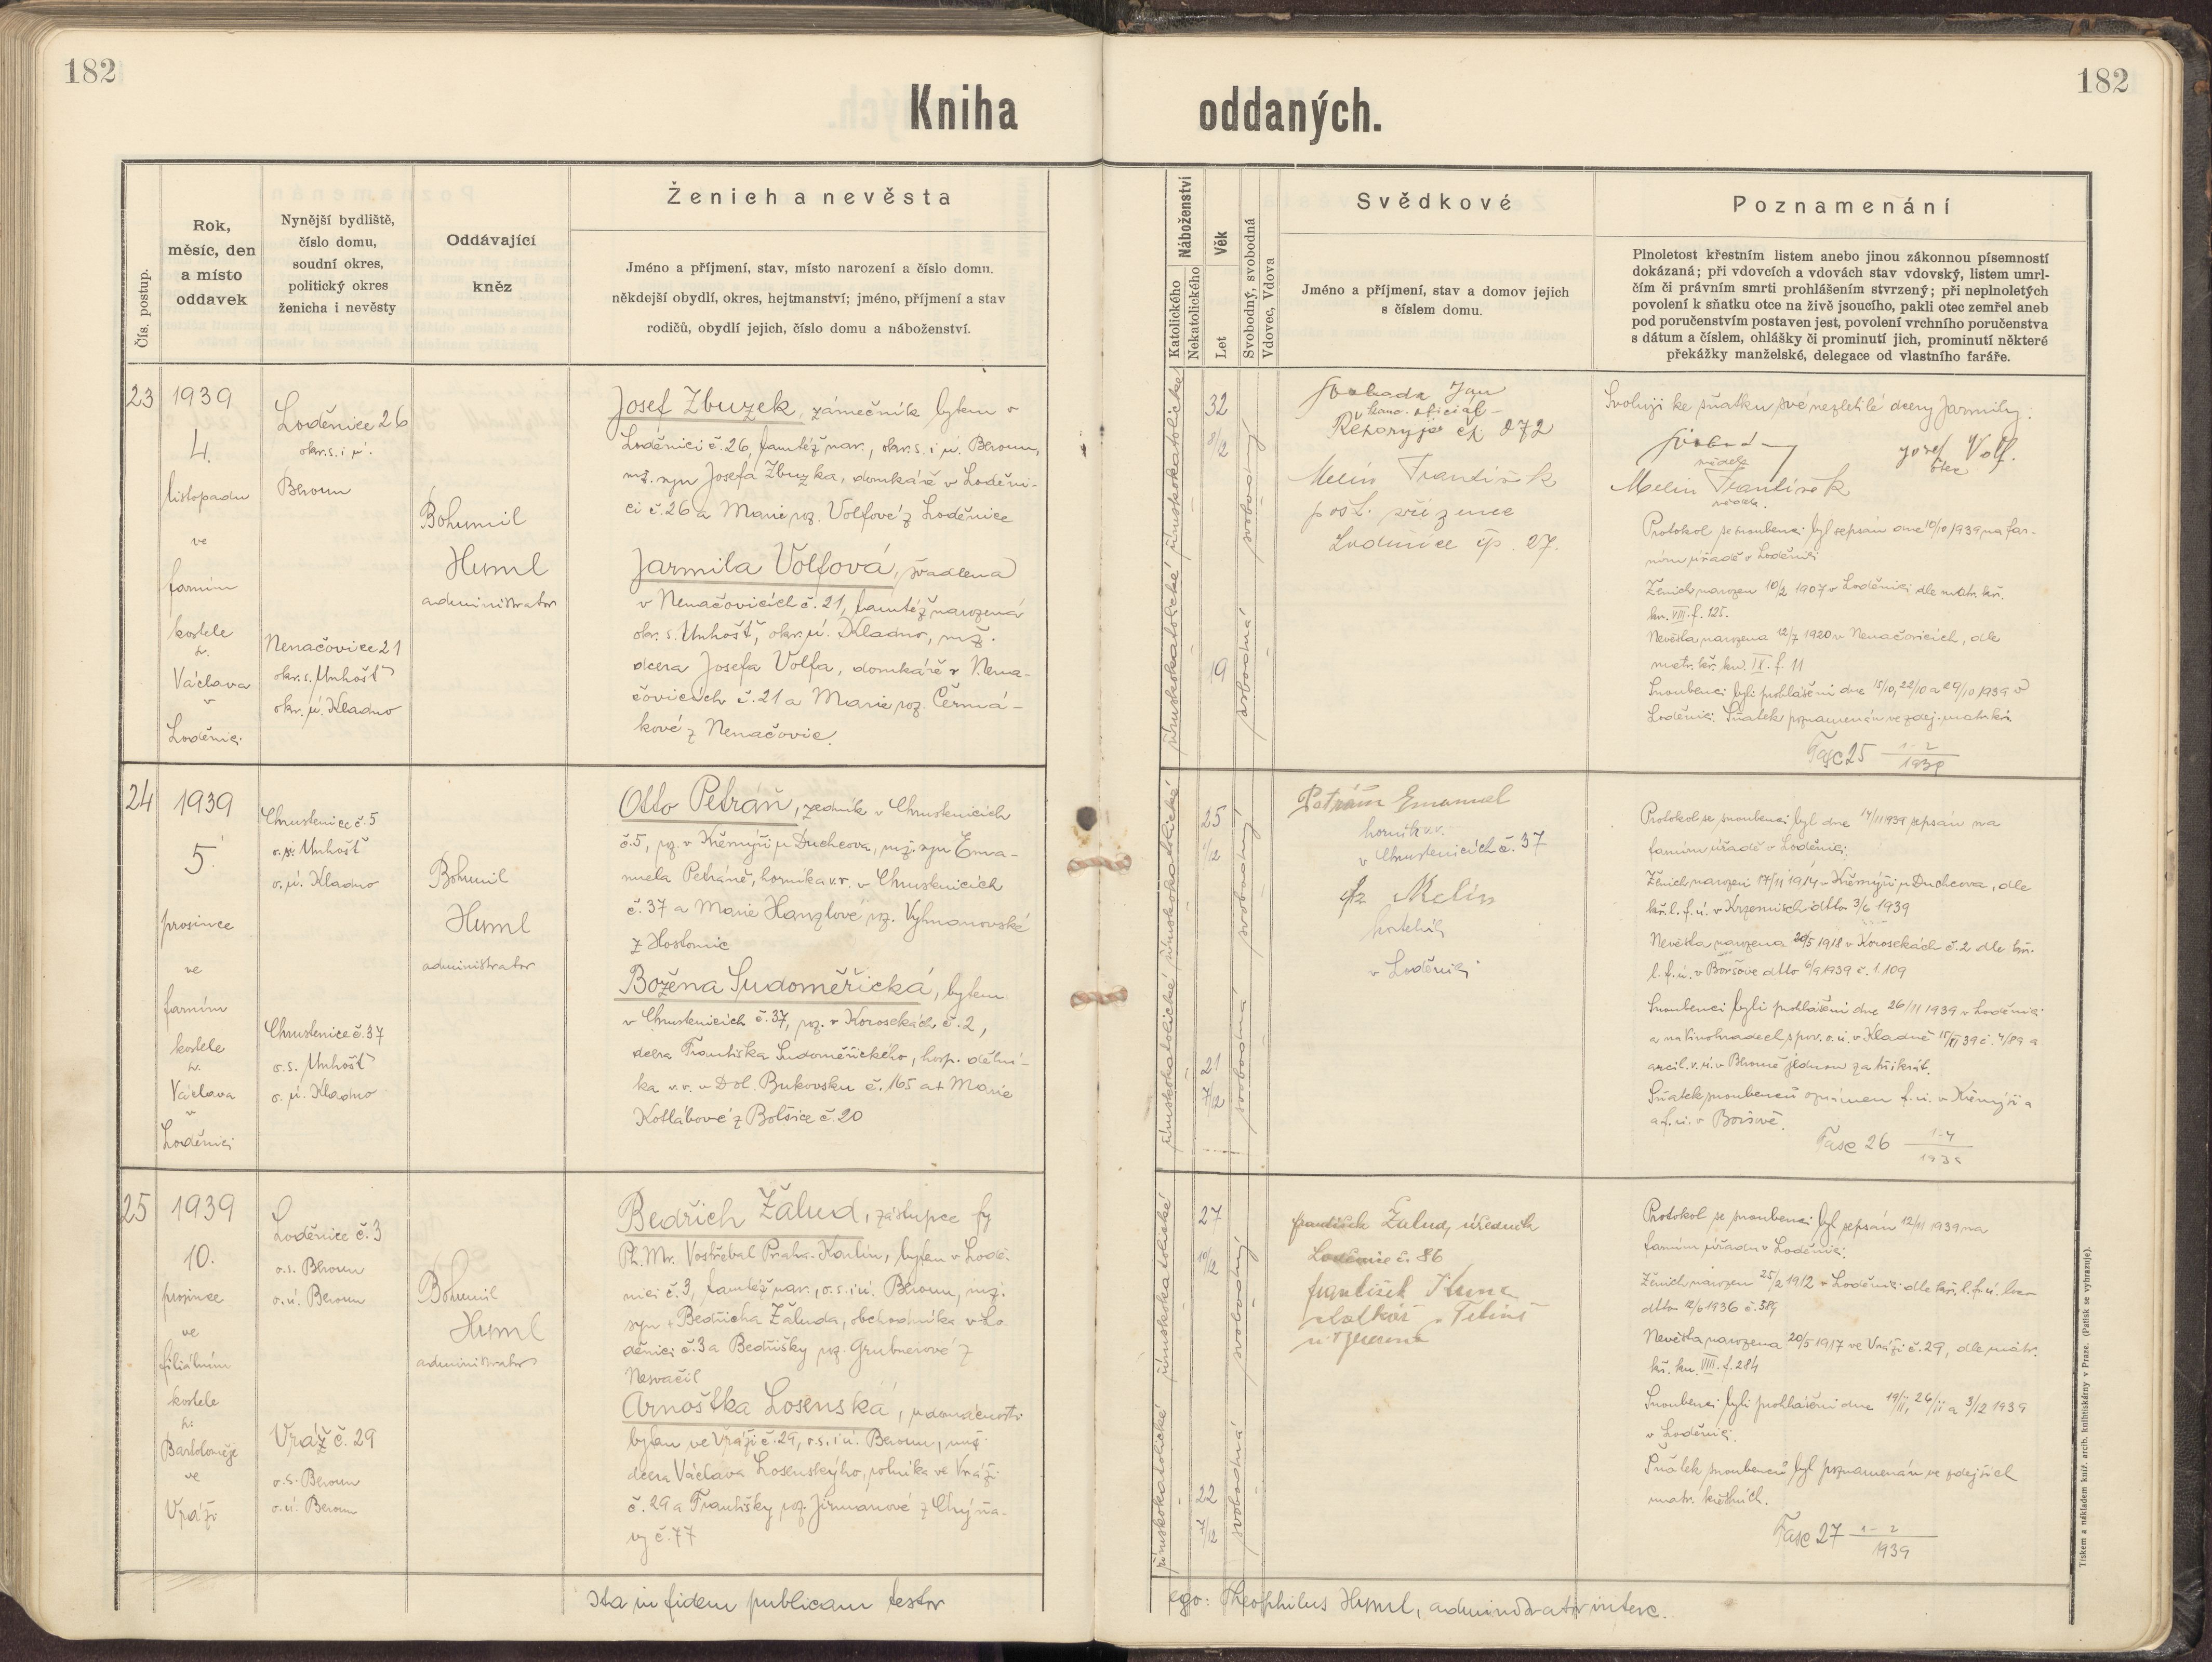 182
Kniha
Čís. postup.
Rok,
měsíc, den
a místo
oddavek
Nynější bydliště,
číslo domu,
soudní okres,
politický okres
ženicha i nevěsty
Oddávající
kněz
Ženich a nevěsta
Jméno a příjmení, stav, místo narození a číslo domu.
někdejší obydlí, okres, hejtmanství; jméno, příjmení a stav
rodičů, obydlí jejich, číslo domu a náboženství.
23
1939
4.
listopadu
ve
farním
kostele
sv.
Václava
v
Loděnici
Loděnice 26
okr. s. i p.
Beroun
Nenačovice 21
okr. s. Unhošť
okr. p. Kladno
Bohumil
Huml
administrator
Josef Zbuzek, zámečník bytem v
Loděnici č. 26, tamtéž nar., okr. s. i p. Beroun,
mž. syn Josefa Zbuzka, domkáře v Loděni-
ci č. 26 a Marie roz. Volfové z Loděnice
Jarmila Volfová, švadlena
v Nenačovicích č. 21, tamtéž narozená
okr. s. Unhošť, okr. p. Kladno, mž.
dcera Josefa Volfa, domkáře v Nena-
čovicích č. 21 a Marie roz. Čermá-
kové z Nenačovic.
24
1939
5.
prosince
ve
farním
kostele
sv.
Václava
v
Loděnici
Chrustenice č. 5
o. s. Unhošť
o. p. Kladno
Chrustenice č. 37
o. s. Unhošť
o. p. Kladno
Bohumil
Huml
administrator
Otto Petráň, zedník v Chrustenicích
č. 5, roz. v Křemýži u Duchcova, mž. syn Ema-
nuela Petráně, horníka v. v. v Chrustenicích
č. 37 a Marie Hanzlové roz. Vyhnanovské
z Hostomic
Božena Sudoměřická, bytem
v Chrustenicích č. 37, roz. v Korosekách č. 2,
dcera Františka Sudoměřického, hosp. dělní-
ka v. v. v Dol. Bukovsku č. 165 a + Marie
Kotlábové z Bošice č. 20
25
1939
10.
prosince
ve
filiálním
kostele
sv.
Bartoloměje
ve
Vráži
Loděnice č. 3
o. s. Beroun
o. ú. Beroun
Vráž č. 29
o. s. Beroun
o. ú. Beroun
Bohumil
Huml
administrator
Bedřich Žalud, zástupce fy
Ph. Mr. Vostřebal Praha-Karlín, bytem v Lodě-
nici č. 3, tamtéž nar., o. s. i ú. Beroun, mž.
syn + Bedřicha Žaluda, obchodníka v Lo-
děnici č. 3 a Bedřišky roz. Grubnerové z
Nesvačil
Arnoštka Losenská, v domácnosti
bytem ve Vráži č. 29, o. s. i ú. Beroun, mž.
dcera Václava Losenského, rolníka ve Vráži
č. 29 a Františky roz. Jirmanové z Chýňa-
vy č. 77
Ita in fidem publicam testor
182
oddaných.
Náboženství
Katolického
Nekatolického
Věk
Let
Svobodný, svobodná
Vdovec, Vdova
Svědkové
Jméno a příjmení, stav a domov jejich
s číslem domu.
Poznamenání
Plnoletost křestním listem anebo jinou zákonnou písemností
dokázaná; při vdovcích a vdovách stav vdovský, listem umrl-
čím či právním smrti prohlášením stvrzený; při neplnoletých
povolení k sňatku otce na živě jsoucího, pakli otec zemřel aneb
pod poručenstvím postaven jest, povolení vrchního poručenstva
s dátum a číslem, ohlášky či prominutí jich, prominutí některé
překážky manželské, delegace od vlastního faráře.
římskokatolické
32
8/12
svobodný
římskokatolické
19
svobodná
Svoboda Jan
kanc. oficiál
Řeporyje čp. 272
Melín František
pošt. zřízenec
Loděnice čp. 27.
Svoluji ke sňatku své nezletilé dcery Jarmily:
Svoboda
svědek
Josef Volf.
otec
Melín František
svědek.
Protokol se snoubenci byl sepsán dne 10/10 1939 na far-
ním úřadě v Loděnici
Ženich narozen 10/2 1907 v Loděnici dle matr. kř.
kn. VIII. f. 125.
Nevěsta narozena 12/7 1920 v Nenačovicích, dle
matr. kř. kn. IX. f. 11
Snoubenci byli prohlášeni dne 15/10, 22/10 a 29/10 1939 v
Loděnici. Sňatek poznamenán ve zdej. matr. kř.
Fasc 25 1-2/1939
římskokatolické
25
1/12
svobodný
římskokatolické
21
7/12
svobodná
Petráň Emanuel
horník v. v.
v Chrustenicích č. 37
Fr Melín
kostelník
v Loděnici
Protokol se snoubenci byl dne 14/11 1939 sepsán na
farním úřadě v Loděnici
Ženich narozen 17/11 1914 v Křemýži u Duchcova, dle
kř. l. f. ú. v Krzemusch ddto 3/6 1939
Nevěsta narozena 20/5 1918 v Korosekách č. 2 dle kř.
l. f. ú. v Boršově ddto 6/9 1939 č. 1.109
Snoubenci byli prohlášeni dne 26/11 1939 v Loděnici
arcil. v. ú. v Berouně jednou za třikrát.
Sňatek snoubenců oznámen f. ú. v Křemýži a
a f. ú. v Boršově.
Fasc 26 1-4/1939
římskokatolické
27
10/12
svobodný
římskokatolické
22
7/12
svobodná
František Žalud, úředník
Loděnice č. 86
František
statkář v Tetíně
u Berouna
Protokol se snoubenci byl sepsán 12/11 1939 na
farním úřadu v Loděnici
Ženich narozen 25/2 1912 v Loděnici dle kř. l. f. ú.
ddto 12/6 1936 č. 389
Nevěsta narozena 20/5 1917 ve Vráži č. 29, dle matr.
kř. kn. VIII. f. 284
Snoubenci byli prohlášeni dne 19/11, 26/11 a 3/12 1939
v Loděnici.
Sňatek snoubenců byl poznamenán ve zdejších
matr. křestních.
Fasc 27 1-2/1939
ego: Theophilus Huml, administrator interc.
Tiskem a nákladem kníž. arcib. knihtiskárny v Praze. (Patisk se vyhrazuje).